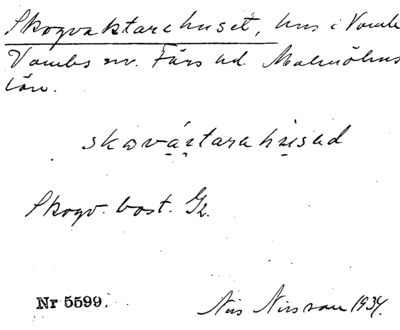 Skogvaktarehuset, hus i Vomb
Vombs sn. Färs hd. Malmöhus
län.
skovástarahusad
Skogv. bost. Gk.
Nr 5599.
Nils Nilsson 1934.